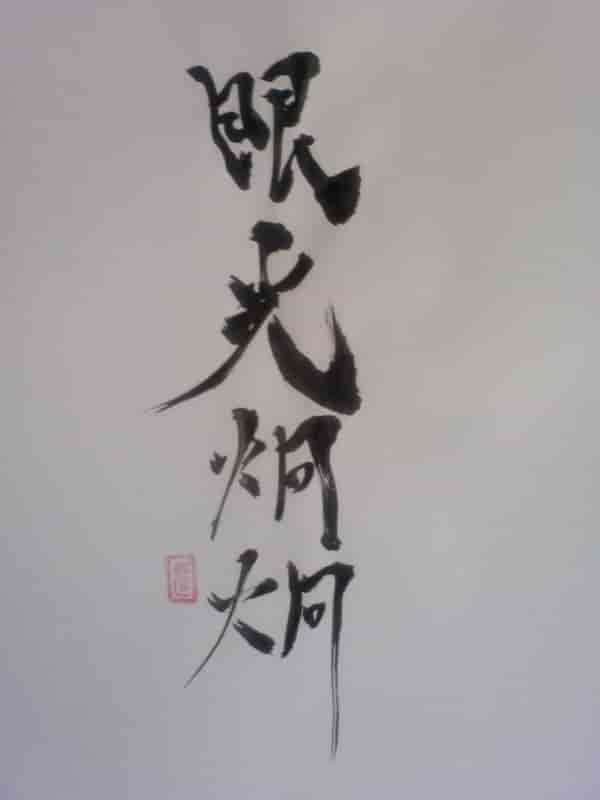 眼光炯炯